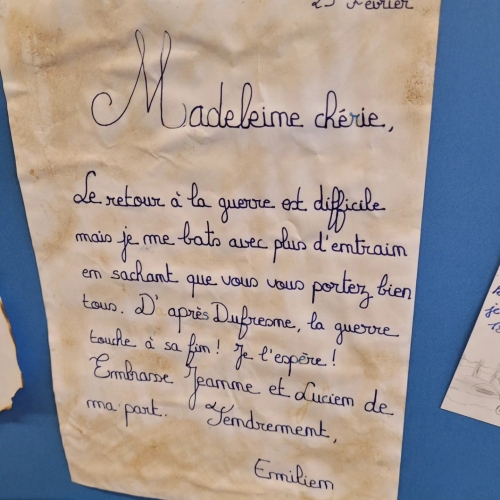 Février
Madeleine chérie,
Le retour à la guerre est difficile
mais je me bats avec plus d'entrain
en sachant que vous vous portez bien
tous. D'après Dufresne, la guerre
touche à sa fin! Je l'espère!
Embrasse Jeanne et Lucien de
ma part. Tendrement,
Emilien